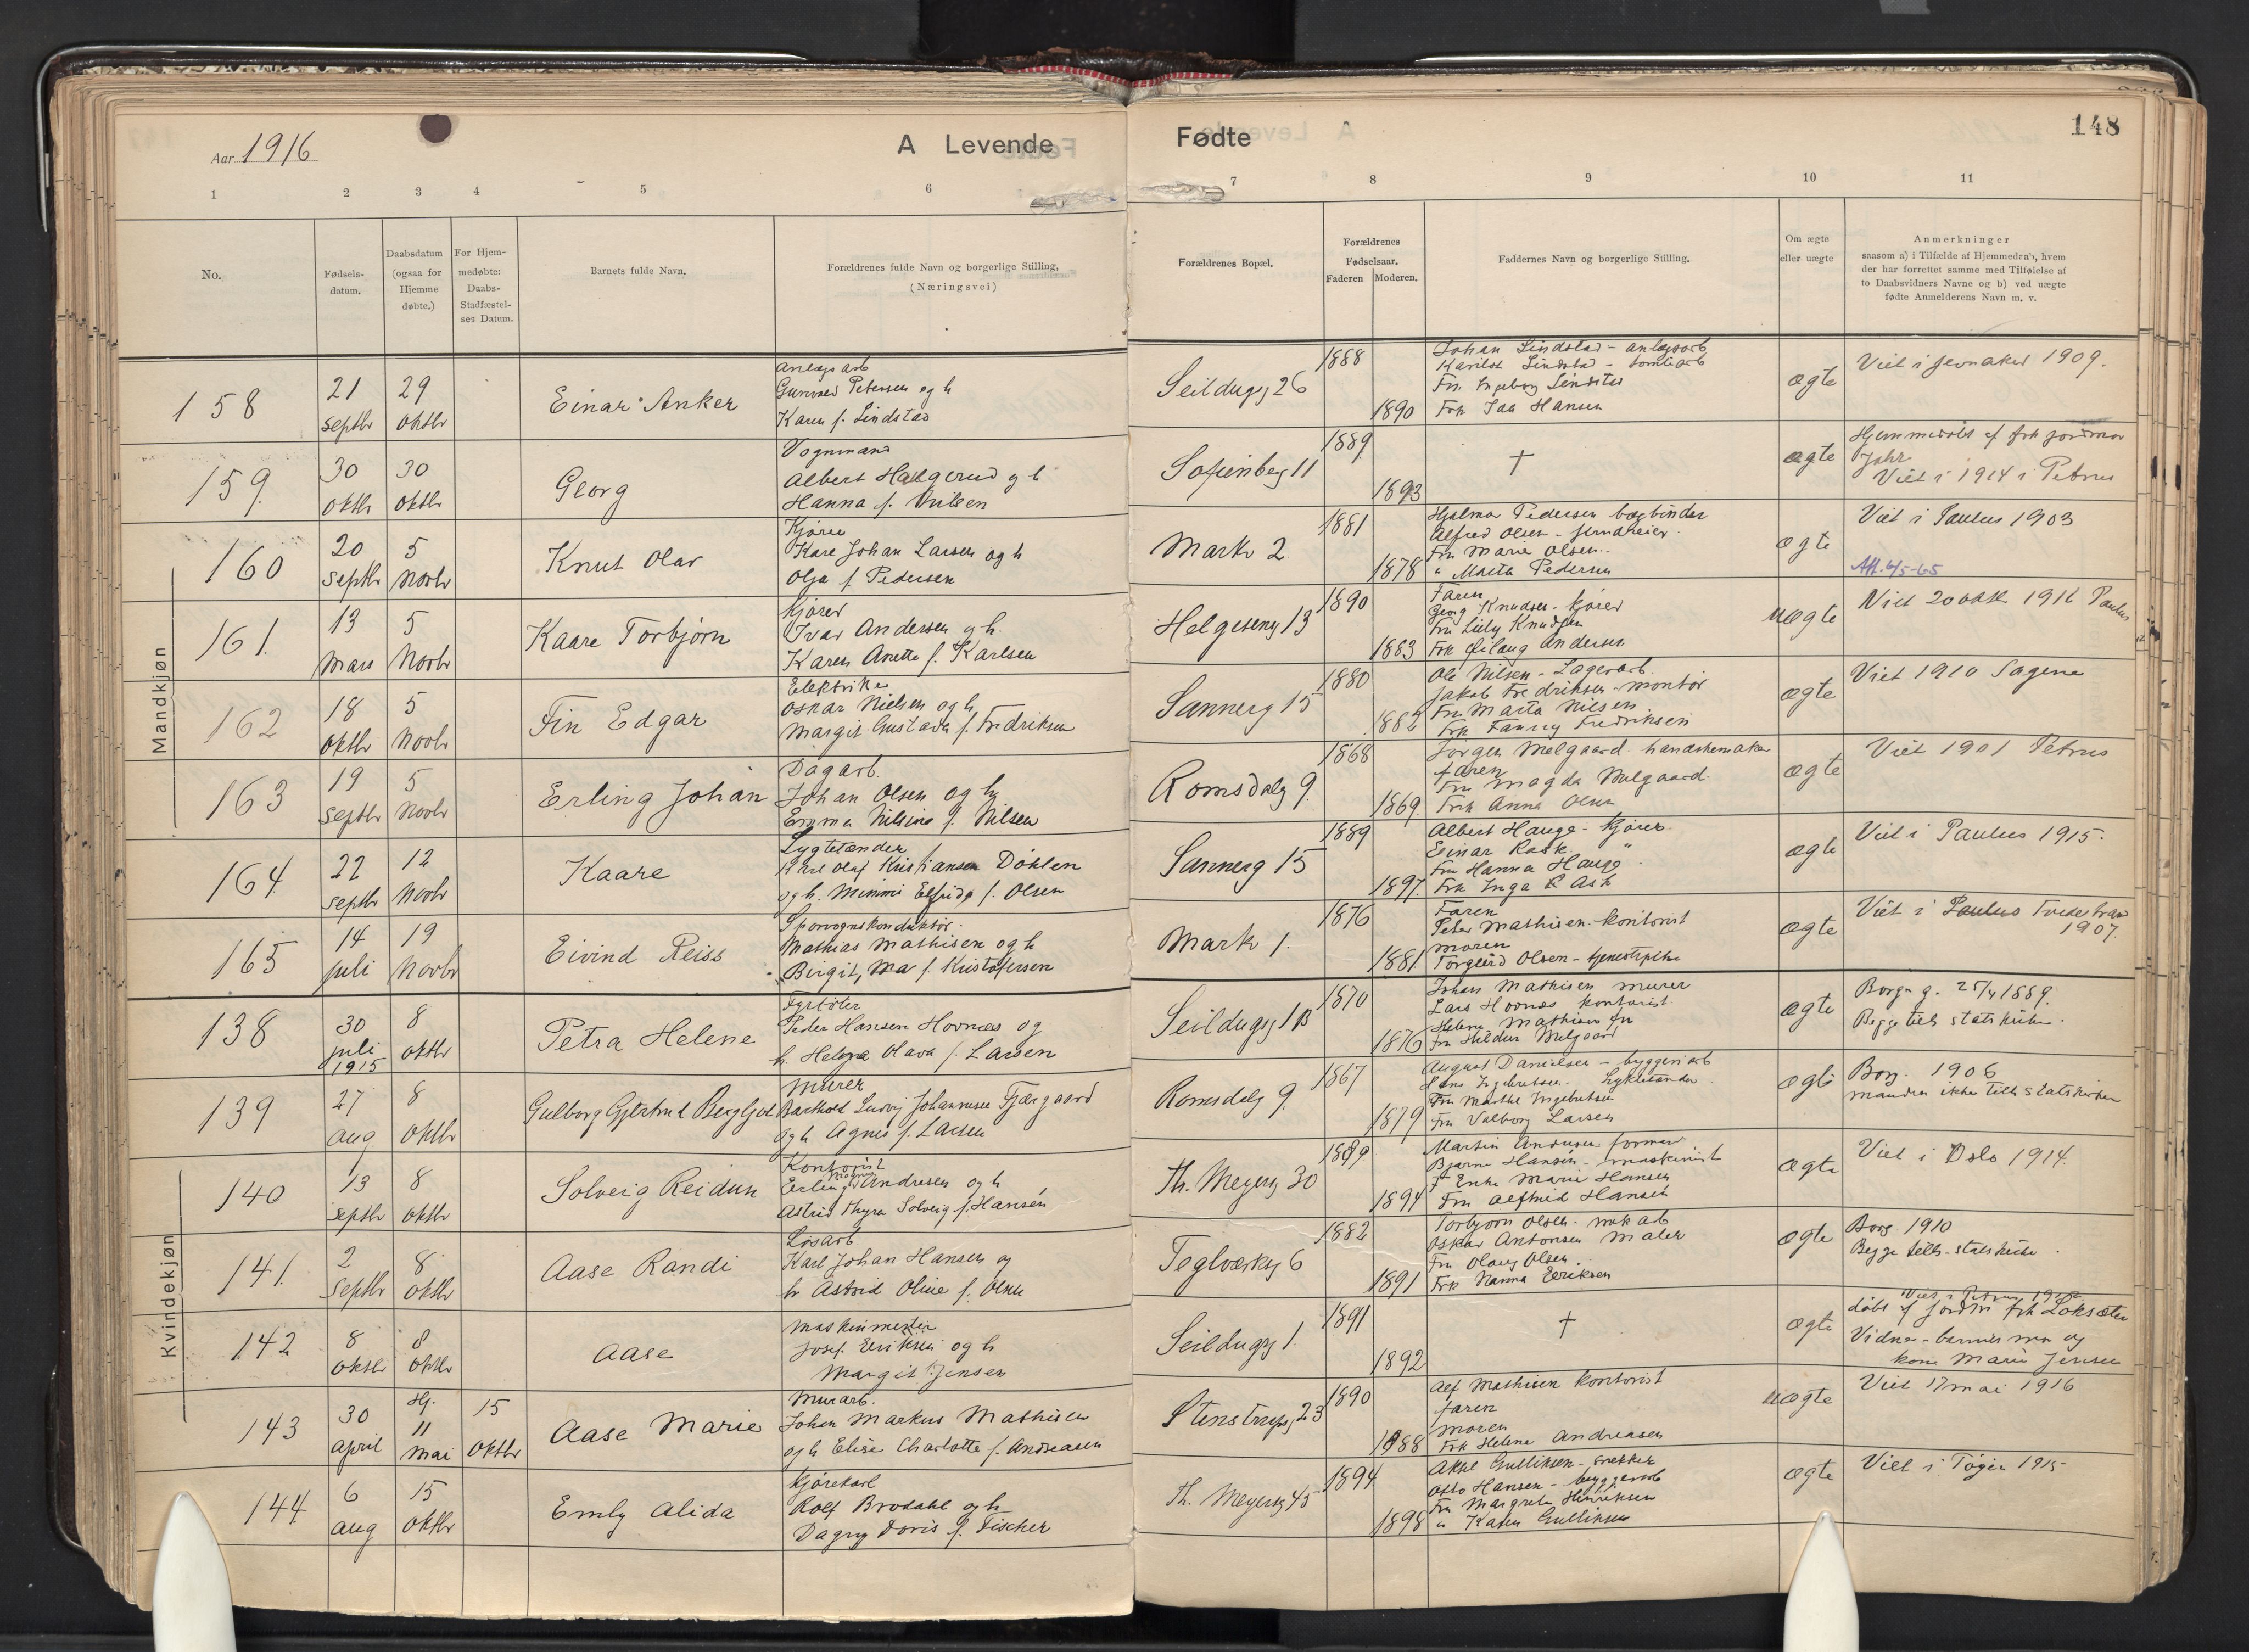 Aar 1916
A Levende
Fødte
148
1 2 3 4 5 6 7 8 9 10 11
No.
Fødsels-
datum.
Daabsdatum
(ogsaa for
Hjemme
døbte.)
For Hjem-
medøbte:
Daabs-
Stadfæstel-
ses Datum.
Barnets fulde Navn.
Forældrenes fulde Navn og borgerlige Stilling,
(Næringsvei)
Forældrenes Bopæl.
Forældrenes
Fødselsaar.
Faderen Moderen.
Faddernes Navn og borgerlige Stilling.
Om ægte
eller uægte
Anmerkninger
saasom a) i Tilfælde af Hjemmedaab, hvem
der har forrettet samme med Tilføielse af
to Daabsvidners Navne og b) ved uægte
fødte Anmelderens Navn m. v.
Mandkjøn
158
21
septbr
29
oktbr
Einar Anker
Anlægsarb
Petersen og h
Karen f. Lindstad
Seildugsg 26
1888
1890
Johan Lindstad - anlægsarb
Lindstad
Fru Ingeborg Lindstad
Frk Hansen
ægte
Viet i Jevnaker 1909.
159.
30
oktbr
30
oktbr
Georg
Vognmand
Albert Halgerud og h
Hanna f. Nilsen
Sofienberg 11
1889
1893
†
ægte
Hjemmedøbt af frk jordmor
Viet i 1914 i Petrus
160
20
septbr
5
Novbr
Knut Olav
Kjører
Kare Johan Larsen og h
Olga f Pedersen
Markv 2
1881
1878
Hjalmar Pedersen bogbinder
Alfred Olsen
Fru Marie Olsen
" Marta Pedersen
ægte
Viet i Paulus 1903
Att. 4/5-65
161.
13
Mars
5
Novbr
Kaare Torbjørn
Kjører
Ivar Andersen og h.
Karen Anette f. Karlsen
Helgeseng 13
1890
1883
Faren
Georg Knudsen - Kjører
Fru Lilly Knudsen
Frk Andersen
uægte
Viet 20 okt 1916 Paulus
162
18
oktbr
5
Novbr
Fin Edgar
Elektriker
Oskar Nielsen og h
Margit Gustava f. Fredriksen
Sannerg 15
1880
1882
Ole Nilsen - Lagerarb.
Jakob Fredriksen - montør
Fru Marta Nilsen
Frk Fanny Fredriksen
ægte
Viet 1910 Sagene
163
19
septbr
5
Novbr
Erling Johan
Dagarb.
Johan Olsen og h
Emma Nilsine f. Nilsen
Romsdalg 9.
1868
1869.
Jørgen Melgaard. handskemaker
faren
Fru Magda Melgaard.
Frk Anna Olsen
ægte
Viet 1901 Petrus
164
22
septbr
12
Novbr
Kaare
Lygtetænder
Karl Olaf Kristiansen Døhlen
og h. Mimmi Elfrida f. Olsen
Sannerg 15
1889
1897.
Albert Hauge - Kjører
Einar Rask "
Fru Hanna Hauge
Frk Inga Ask
ægte
Viet i Paulus 1915.
165
14
juli
19
Novbr
Eivind Reiss
Sporvognskonduktør.
Mathias Mathisen og h
Birgit, Ma f. Kristofersen
Markv 1.
1876
1881
Faren
Peter Mathisen - kontorist
moren
Torgerd Olsen - tjenestepike
ægte
Viet i Tvedestrand
1907.
Kvindekjøn
138
30
juli
1915
8
oktbr
Petra Helene
Fyrbøter
Peder Hansen Hovnæs og
h. Helga Olava f. Larsen
Seildugsg 1B
1870
1876
Johan Mathisen murer
Lars Hovnæs kontorist.
Helene Mathisen fru
Fru Hildur Melgaard
ægte
Borg. g. 25/4 1889.
Begge tilh statskirken.
139
27
aug
8
oktbr
Gulborg Gjertrud Bergljot
Murer
Barthold Ludvig Johannesen Fjærgaard
og h Agnes f. Larsen
Romsdalg 9.
1867
1879
August Danielsen - byggeriarb
Hans Ingebretsen. Lyktetænder
Fru Marthe Ingebretsen
Fru Valborg Larsen
ægte
Borg. 1906
manden ikke tilh statskirken
140
13
septbr
8
oktbr
Solveig Reidun
Kontorist
Erling Magnus Andresen og h
Astrid Thyra Solveig f. Hansen
Th. Meyersg 30
1889
1894
Martin Andresen formand
Bjarne Hansen - maskinist
Enke Marie Hansen
Fru Alfhild Hansen
ægte
Viet i Oslo 1914.
141.
2
Septbr
8
oktbr
Aase Randi
Løsarb
Karl Johan Hansen og
h Astrid Oline f. Olsen
Teglverksg 6
1882
1891
Torbjørn Olsen
Oskar Antonsen Maler
Fru Olaug Olsen
Frk Nanna Eriksen
ægte
Borg 1910
Begge tilh. statskirken.
142
8
oktbr
8
oktbr
Aase
Maskinmester
Josef Eriksen og h
Margit Jensen
Seildugsg 1.
1891
1892
†
ægte
Viet i Petrus
døbt af jordm frk Loksæter
Vidner - barnets mor og
kone Marie Jensen
143
30
april
Hj.
11
mai
15
oktbr
Aase Marie
Murarb.
Johan Markus Mathisen
og h Elise Charlotte f. Andreasen
Stenstrupsg 23
1890
1888
Alf Mathisen kontorist
faren
moren
Frk Helene Andreasen
uægte
Viet 17 mai 1916
144
6
aug
15
oktbr
Emly Alida
Kjørekarl
Rolf Brodahl og h
Dagny Doris f. Fischer
Th. Meyersg 45
1894
1898
Aksel Gulliksen - snekker
Otto Hansen - byggearb
Fru Margrete Henriksen
" Karen Gulliksen
ægte
Viet i Tøyen 1915